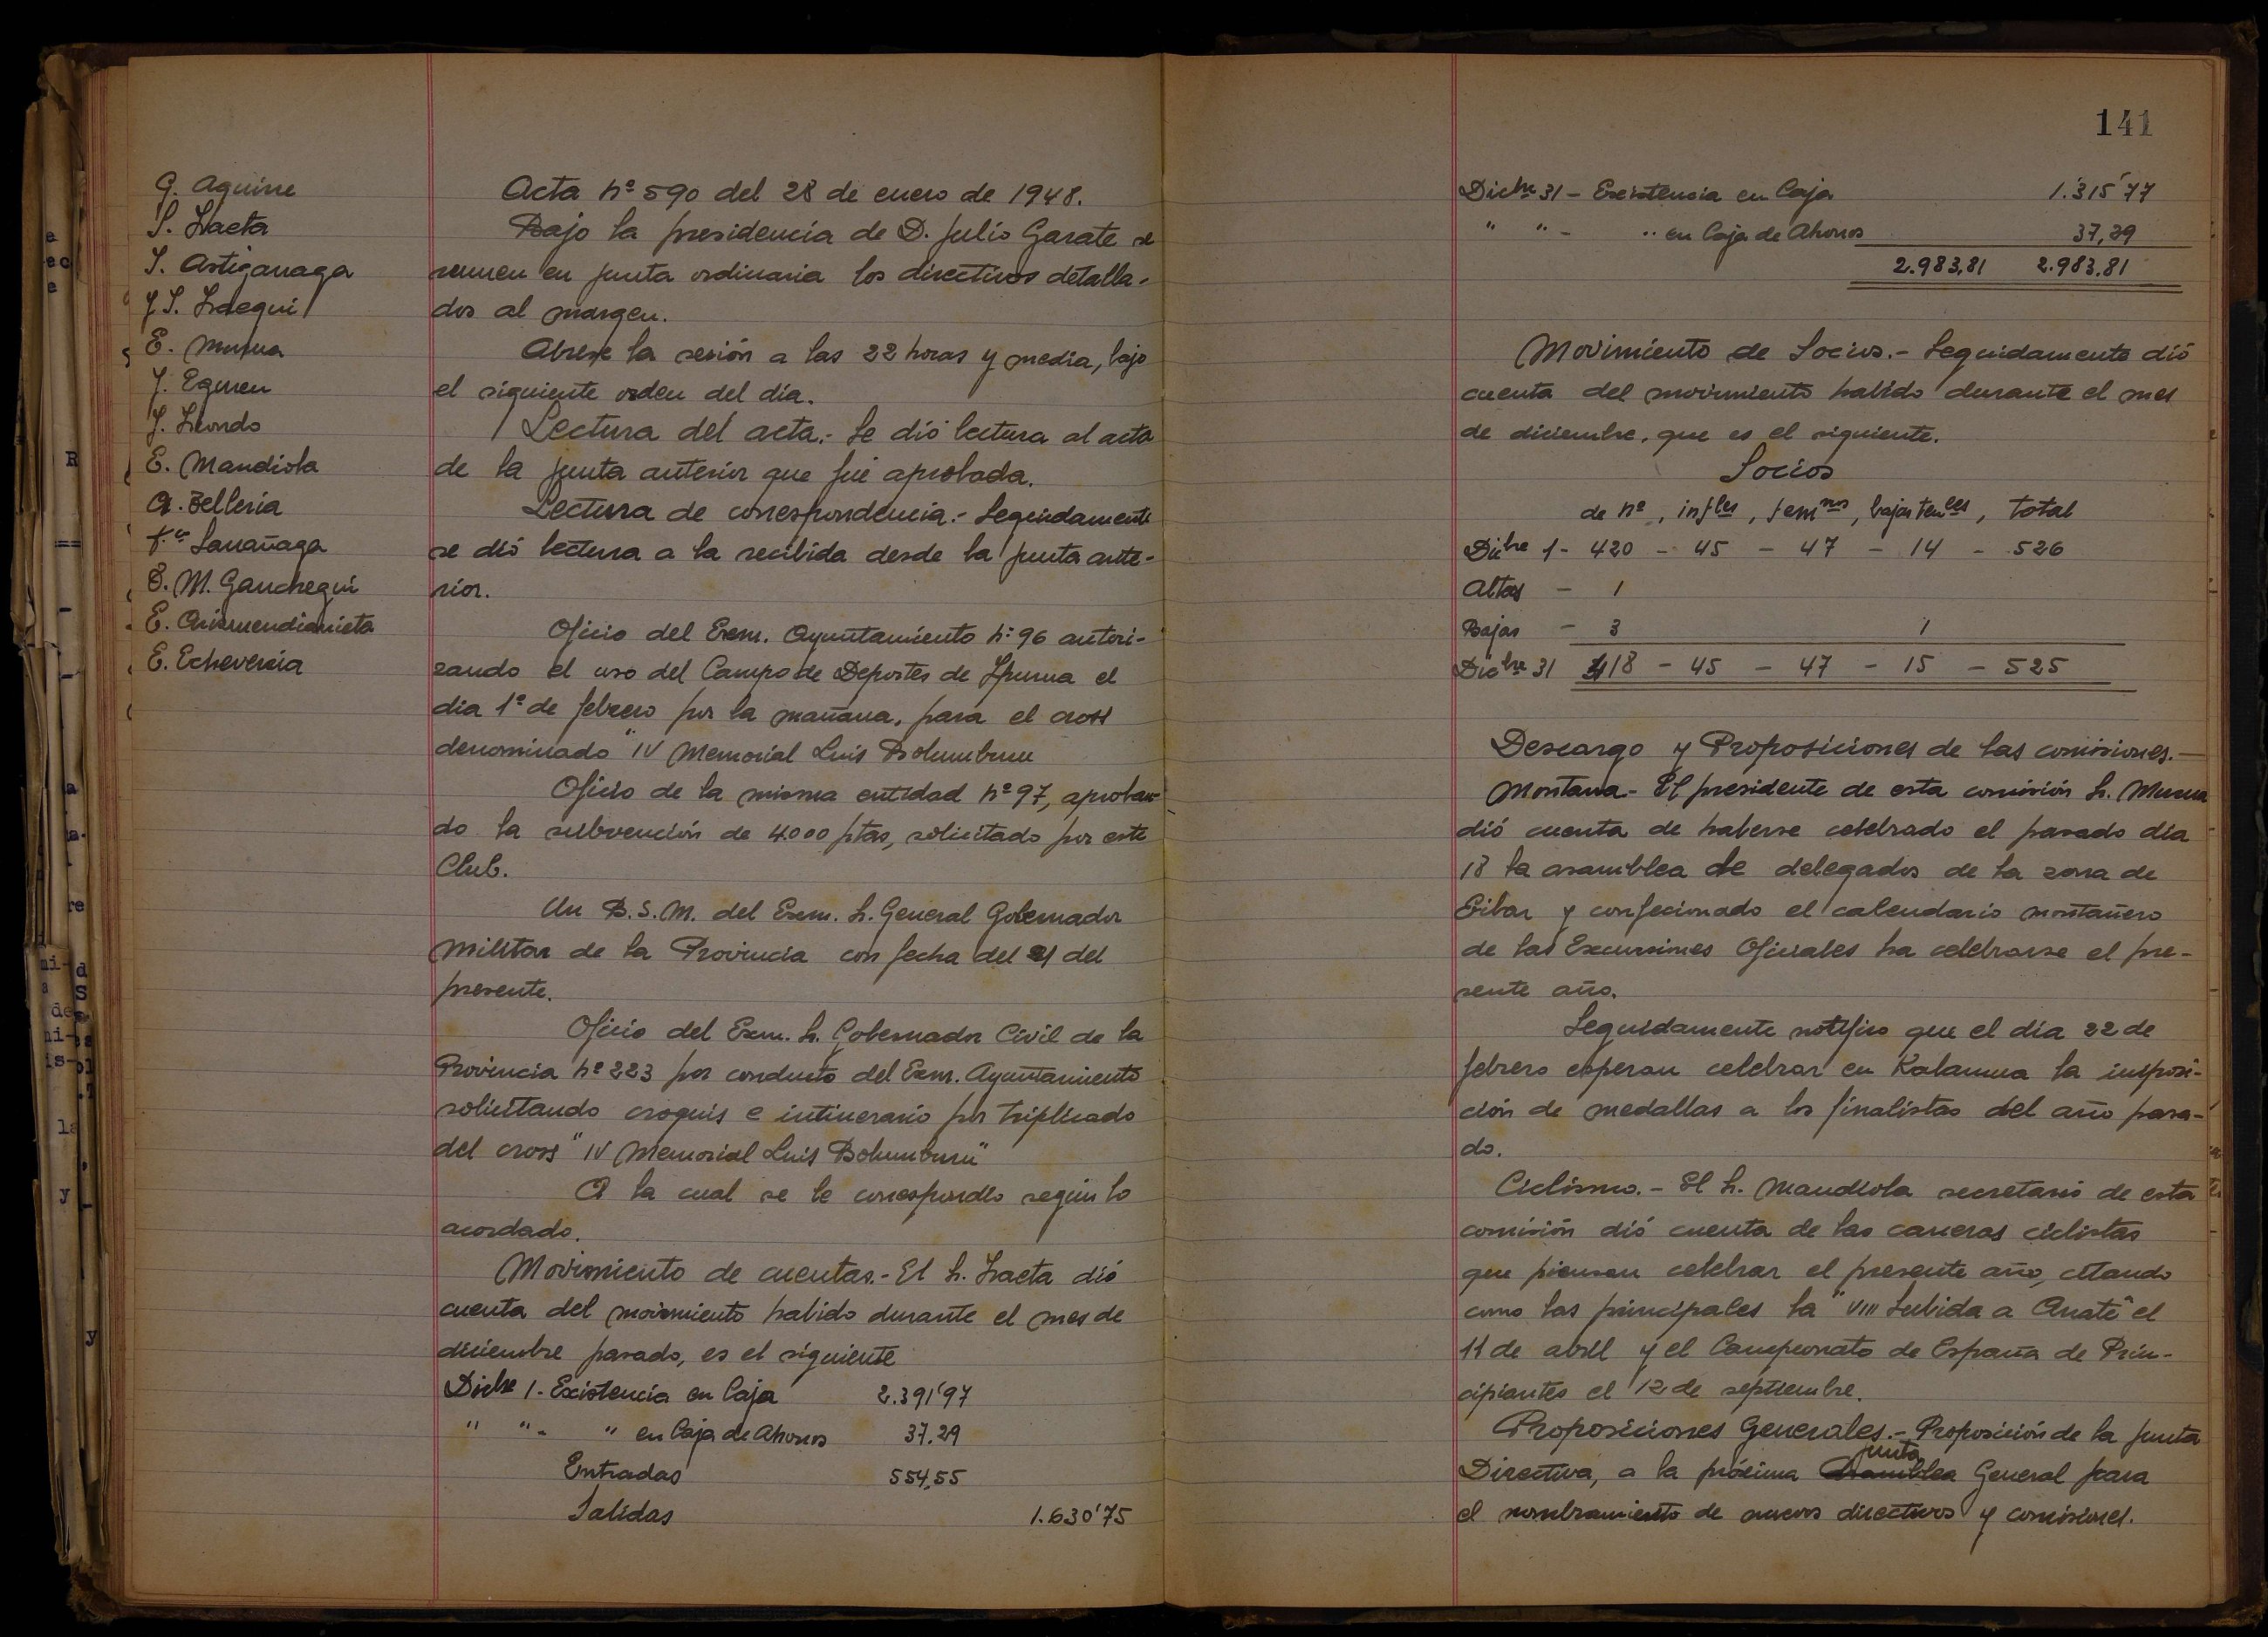 G. Aguirre
S. Izaeta
I. Astigarraga
J. S. Izaegui
E. Munua
J. Eguren
J. Elcondo
E. Mandiola
A. Zelleria
Fco Larrañaga
S. M. Ganchegui
E. Arismendiarrieta
E. Echeverria
Acta nº 590 del 28 de enero de 1948.
Bajo la presidencia de D. Julio Garate se
reunen en junta ordinaria los directivos detalla-
dos al margen.
Abrese la sesión a las 22 horas y media, bajo
el siguiente orden del día.
Lectura del acta.- Se dió lectura al acta
de la junta anterior que fué aprobada.
Lectura de correspondencia.- Seguidamente
se dió lectura a la recibida desde la junta ante-
rior.
Oficio del Exm. Ayuntamiento nº 96 autori-
zando el uso del Campo de Deportes de Ipurua el
dia 1º de febrero por la mañana, para el cross
denominado "IV Memorial Luis Bolumburu
Oficio de la misma entidad nº 97, aproban-
do la subvención de 4.000 ptas, solicitado por este
Club.
Un B.S.M. del Exm. Sr. General Gobernador
Militar de la Provincia con fecha del 21 del
presente.
Oficio del Exm. Sr. Gobernador Civil de la
Provincia nº 223 por conducto del Exm. Ayuntamiento
solicitando croquis e intinerario por triplicado
del cross "IV Memorial Luis Bolumburu"
A la cual se le correspondio según lo
acordado.
Movimiento de cuentas.- El Sr. Izaeta dió
cuenta del moivmiento habido durante el mes de
diciembre pasado, es el siguiente
Dicbre 1.- Existencia en Caja 2.391'97
" " - " en Caja de Ahorros 37.29
Entradas 554,55
Salidas 1.630'75
141
Dicbre 31 - Existencia en Caja 1.315'77
" " - " en Caja de Ahorros 37,29
2.983,81 2.983.81
Movimiento de Socios.- Seguidamente dió
cuenta del movimiento habido durante el mes
de diciembre, que es el siguiente.
Socios
de nº, infles, femnos, bajas temles, total
Dicbre 1 - 420 - 45 - 47 - 14 - 526
Altas - 1
Bajas - 3 1
Dicbre 31 418 - 45 - 47 - 15 - 525
Descargo y Proposiciones de las comisiones.-
Montaña.- El presidente de esta comisión Sr. Munua
dió cuenta de haberse celebrado el pasado día
18 la asamblea de delegados de la zona de
Eibar y confecionado el calendario montañero
de las Excursiones Oficiales ha celebrarse el pre-
sente año.
Seguidamente notifico que el día 22 de
febrero esperan celebrar en Kalamua la imposi-
ción de medallas a los finalistas del año pasa-
do.
Ciclismo.- El Sr. Mandiola secretario de esta
comisión dió cuenta de las carreras ciclistas
que piensan celebrar el presente año, citando
como las principales la "VIII Subida a Arrate" el
11 de abril y el Campeonato de España de Prin-
cipiantes el 12 de septiembre.
Proposiciones Generales.- Proposición de la Junta
Directiva, a la próxima Asamblea junta General para
el nombramiento de nuevos directivos y comisiones.